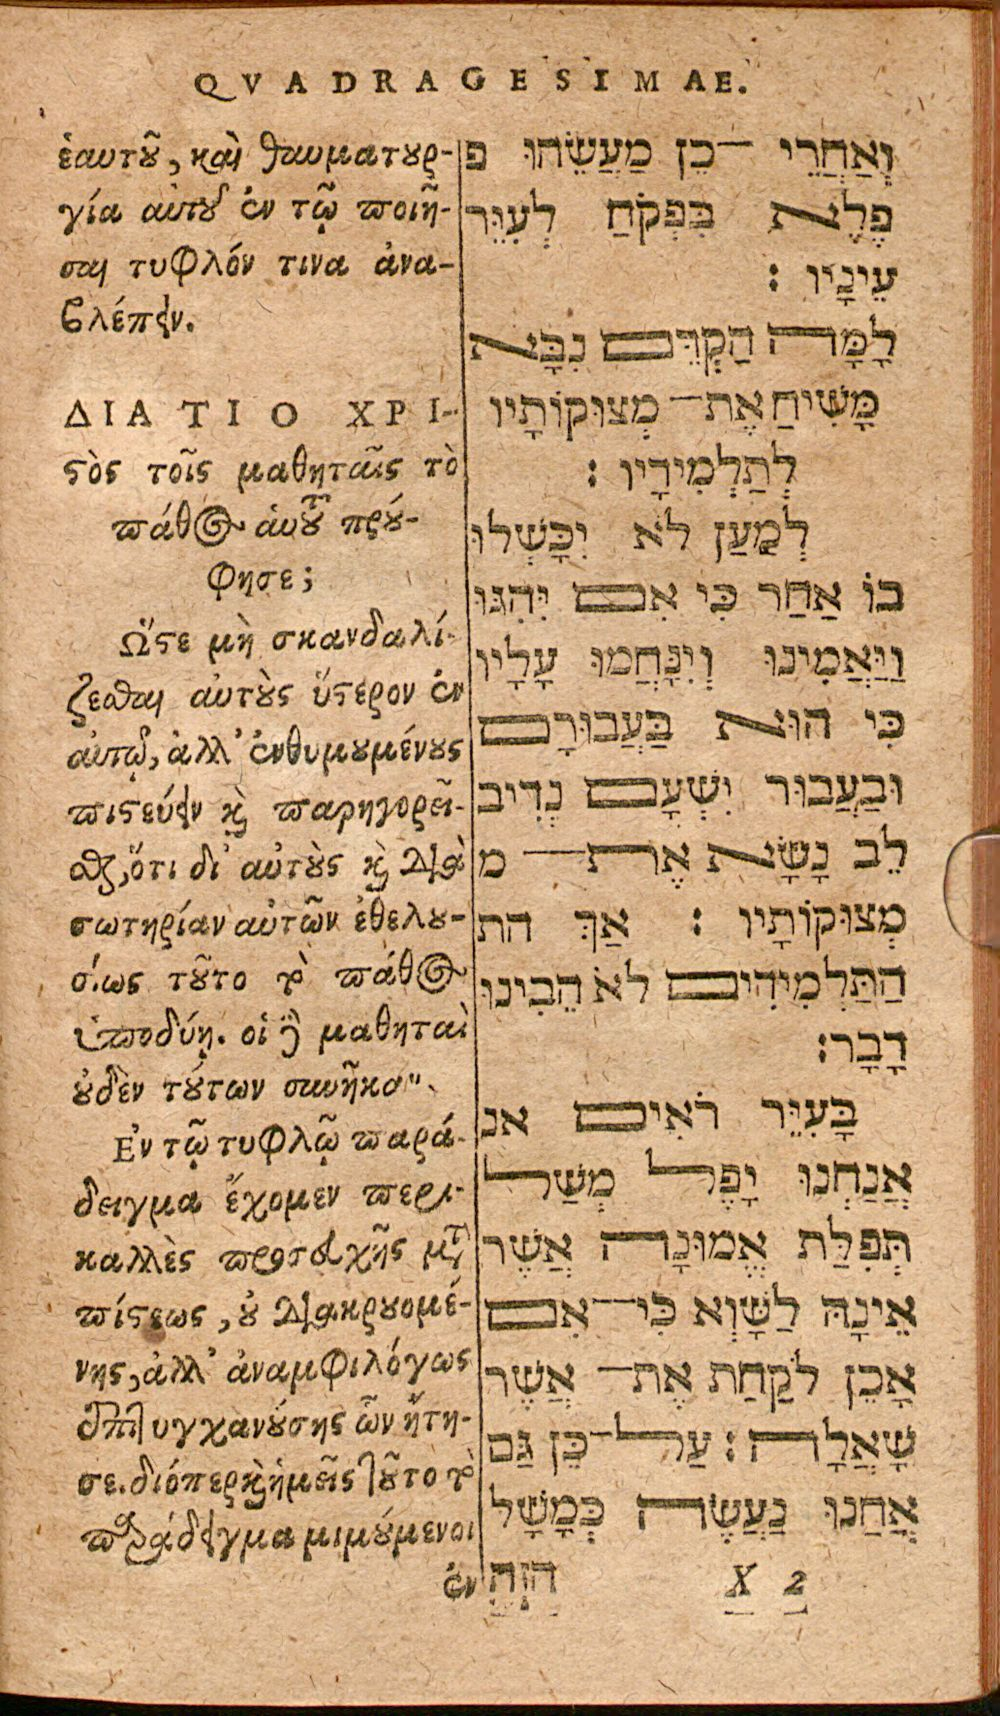 QVADRAGESIMAE.
ἑαυτοῦ, καὶ θαυματουρ-
γία αὐτοῦ ἐν τῷ ποιῆ-
σαι τυφλόν τινα ἀνα-
βλέπειν.
ΔΙΑ ΤΙ Ο ΧΡΙ-
στὸς τοῖς μαθηταῖς τὸ
πάθος αὑτοῦ πρού-
φησε;
Ὥστε μὴ σκανδαλί-
ζεσθαι αὐτοὺς ὕστερον ἐν
αὐτῷ, ἀλλ' ἐνθυμουμένους
πιστεύειν καὶ παρηγορεῖ-
σθαι, ὅτι δι' αὐτοὺς καὶ διὰ
σωτηρίαν αὐτῶν ἐθελου-
σίως τοῦτο τὸ πάθος
ὑποδύῃ. οἱ δὲ μαθηταὶ
οὐδὲν τούτων συνῆκαν.
Ἐν τῷ τυφλῷ παρά-
δειγμα ἔχομεν περι-
καλλὲς προσευχῆς μετὰ
πίστεως, οὐ διακρουομέ-
νης, ἀλλ' ἀναμφιλόγως
ἐπιτυγχανούσης ὧν ἤτη-
σε. διόπερ καὶ ἡμεῖς τοῦτο τὸ
παράδειγμα μιμούμενοι
ἐν
וְאַחֲרֵי־כֵן מַעֲשֵׂהוּ פ
פֶלֶא בִּפְקֹחַ לְעִוֵּר
עֵינָיו:
לָמָּה הַקְדֵּם נִבָּא
מָּשִׁיחַ אֶת־מְצוּקוֹתָיו
לְתַלְמִידָיו:
לְמַעַן לֹא יִכָּשְׁלוּ
בוֹ אַחַר כִּי אִם יִהְגּוּ
וַיַּאֲמִינוּ וְיִנָּחֲמוּ עָלָיו
כִּי הוּא בַּעֲבוּרָם
וּבַעֲבוּר יִשְׁעָם נְדִיב
לֵב נָשָׂא אֶת־מ
מְצוּקוֹתָיו: אַךְ הת
הַתַּלְמִידִים לֹא הֵבִינוּ
דָבָר:
בָּעִיֵּר רֹאִים אנ
אֲנַחְנוּ יָפֶל מְשַׁל
תְּפִלַּת אֱמוּנָה אֲשֶׁר
אֵינָהּ לַשָּׁוְא כִּי־אִם
אָכֵן לֹקַחַת אֶת־אֲשֶׁר
שָׁאֲלָה: עַל־כֵּן גַּם
אֲחַנוּ נַעֲשֶׂה כְּמָשָׁל
הַזֶּה
X 2